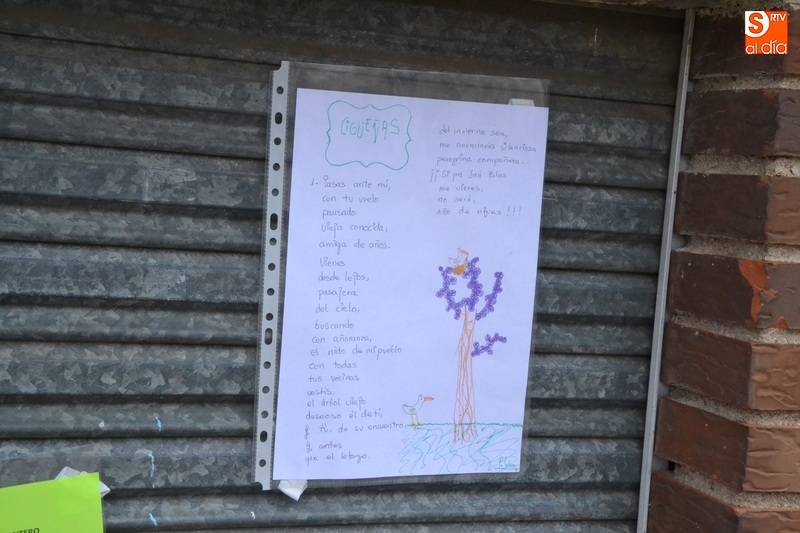 S RTV
al día
CIGÜEÑAS
1. Pasas ante mí,
con tu vuelo
pausado
vieja conocida,
amiga de años.
Vienes
desde lejos,
pasajera
del cielo,
buscando
con añoranza,
el nido de mi pueblo
con todas
tus vecinas
el árbol viejo
deseoso él de ti,
y tú, de su encuentro
y, antes
que el letargo.
del invierno sea,
me anunciarás silenciosa
peregrina compañera...
¡¡ Si por San Blas
me vieres,
no será,
año de nieves !!!
NTERO